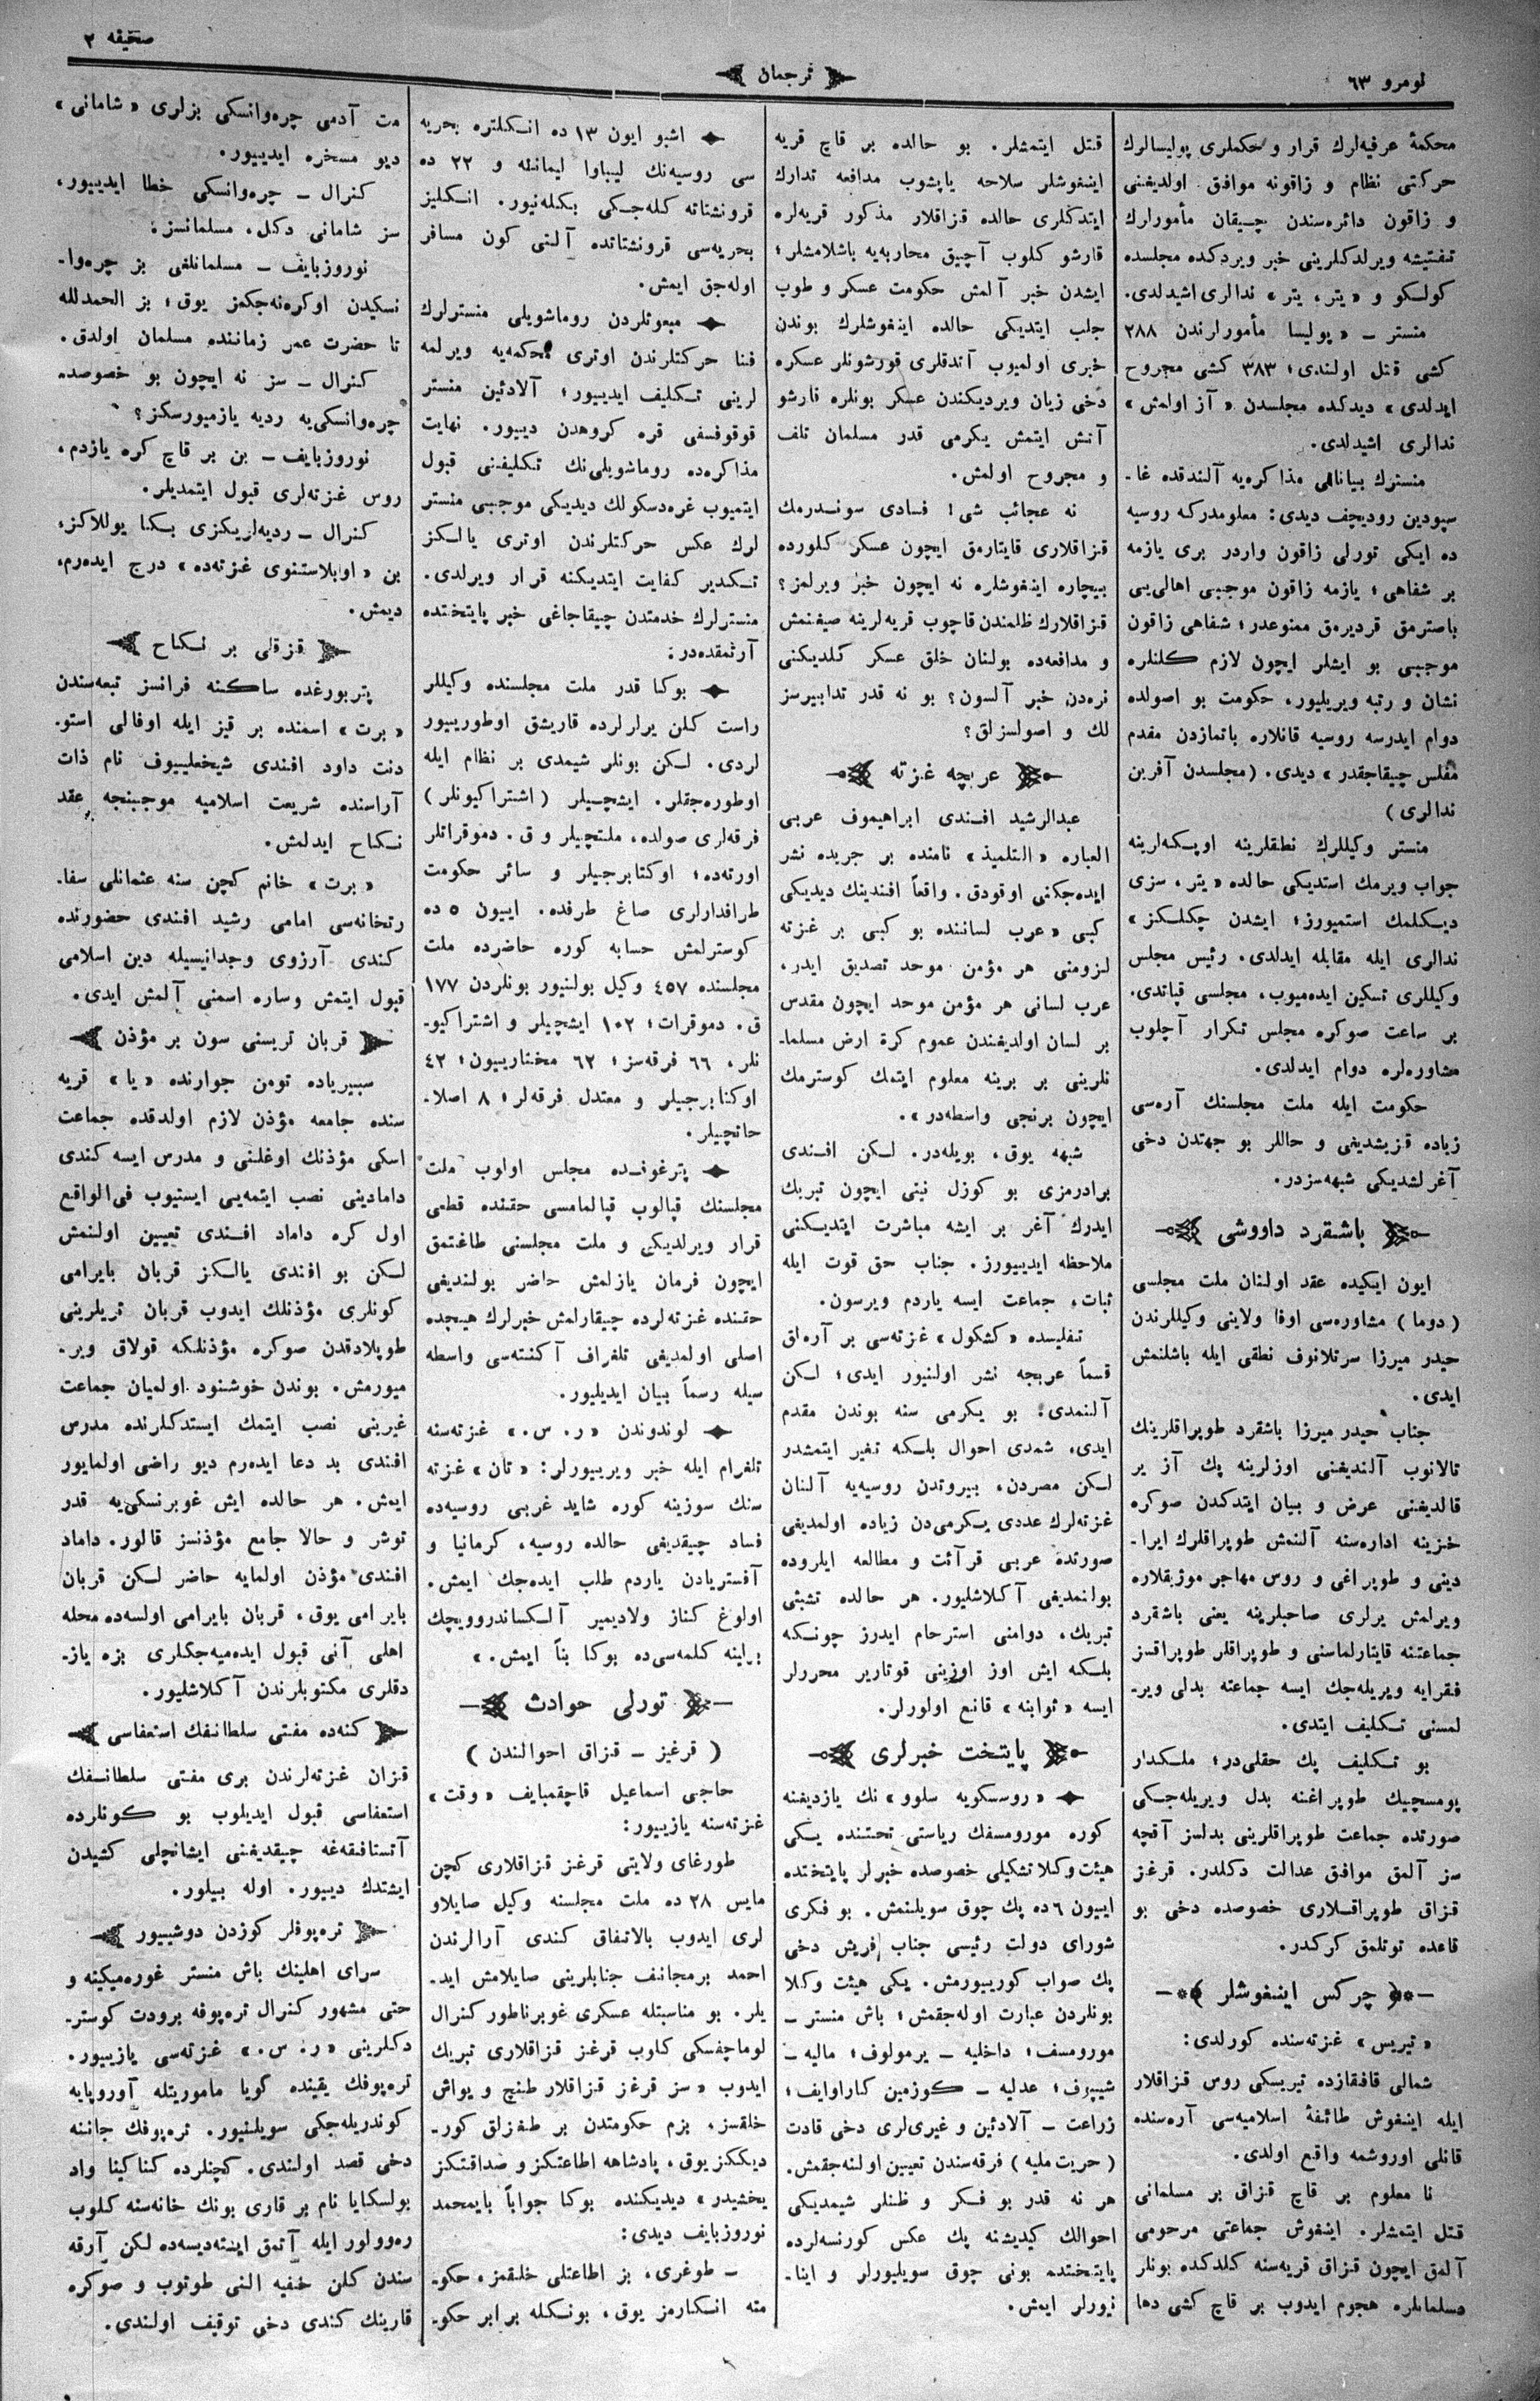 نومرو ٦٣
ترجمان
صحيفه ٢
محكمهٔ عرفيه‌لرك قرار و حكملرى پوليسالرك
حركتى نظام و زاقونه موافق اولديغنى
و زاقون دائره‌سندن چيقان مأمورلرك
تفتيشه ويرلدكلرينى خبر ويردكده مجلسده
كولسكو و «يتر، يتر» ندالرى اشيدلدى.
منستر ــ «پوليسا مأمورلرندن ٢٨٨
كشى قتل اولندى؛ ٣٨٣ كشى مجروح
ايدلدى» ديدكده مجلسدن «آز اولمش»
ندالرى اشيدلدى.
منسترك بياناتى مذاكره‌يه آلندقده غا-
سپودين روديچف ديدى: معلومدركه روسيه
ده ايكى تورلى زاقون واردر برى يازمه
بر شفاهى؛ يازمه زاقون موجبى اهالى‌يى
باصترمق قرديرمق ممنوعدر؛ شفاهى زاقون
موجبى بو ايشلر ايچون لازم كلنلره
نشان و رتبه ويريليور، حكومت بو اصولده
دوام ايدرسه روسيه قانلاره باتمازدن مقدم
مفلس چيقاجقدر» ديدى. (مجلسدن آفرين
ندالرى)
منستر وكيللرك نطقلرينه اوپكه‌لرينه
جواب ويرمك استديكى حالده «يتر، سزى
ديكلمك استميورز؛ ايشدن چكلكز»
ندالرى ايله مقابله ايدلدى. رئيس مجلس
وكيللرى تسكين ايده‌ميوب، مجلسى قپاتدى.
بر ساعت صوكره مجلس تكرار آچلوب
مشاوره‌لره دوام ايدلدى.
حكومت ايله ملت مجلسنك آره‌سى
زياده قزيشديغى و حاللر بو جهتدن دخى
آغرلشديكى شبهه‌سزدر.
باشقرد داووشى
ايون ايكيده عقد اولنان ملت مجلسى
(دوما) مشاوره‌سى اوفا ولايتى وكيللرندن
حيدر ميرزا سرتلانوف نطقى ايله باشلنمش
ايدى.
جناب حيدر ميرزا باشقرد طوپراقلرينك
تالانوب آلنديغنى اوزلرينه پك آز ير
قالديغنى عرض و بيان ايتدكدن صوكره
خزينه اداره‌سنه آلنمش طوپراقلرك ايرا-
دينى و طوپراغى و روس مهاجر موژيقلاره
ويرلمش يرلرى صاحبلرينه يعنى باشقرد
جماعتنه قايتارلماسنى و طوپراقلر طوپراقسز
فقرايه ويريله‌جك ايسه جماعته بدلى وير-
لمسنى تكليف ايتدى.
بو تكليف پك حقلى‌در؛ ملكدار
پومسچيك طوپراغنه بدل ويريله‌جكى
صورتده جماعت طوپراقلرينى بدلسز آقچه
سز آلمق موافق عدالت دكلدر. قرغز
قزاق طوپراقلارى خصوصده دخى بو
قاعده توتلمق كركدر.
چركس اينغوشلر
«تيريس» غزته‌سنده كورلدى:
شمالى قافقازده تيريسكى روس قزاقلار
ايله اينغوش طائفهٔ اسلاميه‌سى آره‌سنده
قانلى اوروشمه واقع اولدى.
نا معلوم بر قاچ قزاق بر مسلمانى
قتل ايتمشلر. اينغوش جماعتى مرحومى
آلمق ايچون قزاق قريه‌سنه كلدكده بونلر
مسلمانلره هجوم ايدوب بر قاچ كشى دها
قتل ايتمشلر. بو حالده بر قاچ قريه
اينغوشلر سلاحه ياپشوب مدافعه تدارك
ايتدكلرى حالده قزاقلار مذكور قريه‌لره
قارشو كلوب آچيق محاربه‌يه باشلامشلر؛
ايشدن خبر آلمش حكومت عسكر و طوپ
جلب ايتديكى حالده اينغوشلرك بوندن
خبرى اولميوب آتدقلرى قورشونلر عسكره
دخى زيان ويرديكندن عسكر بونلره قارشو
آتش ايتمش يكرمى قدر مسلمان تلف
و مجروح اولمش.
نه عجائب شى! فسادى سوندرمك
قزاقلارى قايتارمق ايچون عسكر كلورده
بيچاره اينغوشلره نه ايچون خبر ويرلمز؟
قزاقلارك ظلمندن قاچوب قريه‌لرينه صيغنمش
و مدافعه‌ده بولنان خلق عسكر كلديكنى
نره‌دن خبر آلسون؟ بو نه قدر تدابيرسز
لك و اصولسزلق؟
عربچه غزته
عبدالرشيد افندى ابراهيموف عربى
العباره «التلميذ» نامنده بر جريده نشر
ايده‌جكنى اوقودق. واقعاً افندينك ديديكى
كبى «عرب لساننده بو كبى بر غزته
لزومنى هر مؤمن موحد تصديق ايدر،
عرب لسانى هر مؤمن موحد ايچون مقدس
بر لسان اولديغندن عموم كرۀ ارض مسلما-
نلرينى بر برينه معلوم ايتمك كوسترمك
ايچون برنجى واسطه‌در».
شبهه يوق، بويله‌در. لكن افندى
برادرمزى بو كوزل نيتى ايچون تبريك
ايدرك آغر بر ايشه مباشرت ايتديكنى
ملاحظه ايدييورز. جناب حق قوت ايله
ثبات، جماعت ايسه ياردم ويرسون.
تفليسده «كشكول» غزته‌سى بر آره‌لق
قسماً عربجه نشر اولنيور ايدى؛ لكن
آلنمدى. بو يكرمى سنه بوندن مقدم
ايدى، شمدى احوال بلكه تغير ايتمشدر
لكن مصردن، بيروتدن روسيه‌يه آلنان
غزته‌لرك عددى يكرمى‌دن زياده اولمديغى
صورتده عربى قرآئت و مطالعه ايلروده
بولنمديغى آكلاشليور. هر حالده تشبثى
تبريك، دوامنى استرحام ايدرز چونكه
بلكه ايش اوز اوزينى قوتارير محررلر
ايسه «ثوابنه» قانع اولورلر.
پايتخت خبرلرى
«روسسكويه سلوو» نك يازديغنه
كوره مورومسفك رياستى تحتنده يكى
هيئت وكلا تشكيلى خصوصده خبرلر پايتختده
ايپون ٦ ده پك چوق سويلنمش. بو فكرى
شوراى دولت رئيسى جناب فريش دخى
پك صواب كورييورمش. يكى هيئت وكلا
بونلردن عبارت اوله‌جقمش؛ باش منستر ــ
مورومسف؛ داخليه ــ يرمولوف؛ ماليه ــ
شيپوف؛ عدليه ــ كوزمين كاراوايف؛
زراعت ــ آلادئين و غيرى‌لرى دخى قادت
(حريت مليه) فرقه‌سندن تعيين اولنه‌جقمش.
هر نه قدر بو فكر و ظنلر شيمديكى
احوالك كيديشنه پك عكس كورنسه‌لرده
پايتختده بونى چوق سويليورلر و اينا-
نيورلر ايمش.
اشبو ايون ١٣ ده انكلتره بحريه
سى روسيه‌نك ليباوا ليماننه و ٢٢ ده
قرونشتاته كله‌جكى بكله‌نيور. انكليز
بحريه‌سى قرونشتاتده آلتى كون مسافر
اوله‌جق ايمش.
مبعوثلردن روماشويلى منسترلرك
فنا حركتلرندن اوترى محكمه‌يه ويرلمه
لرينى تكليف ايدييور؛ آلادئين منستر
قوقوفسفى قره كروهدن دييور. نهايت
مذاكره‌ده روماشويلى‌نك تكليفنى قبول
ايتميوب غره‌دسكولك ديديكى موجبى منستر
لرك عكس حركتلرندن اوترى يالكز
تكدير كفايت ايتديكنه قرار ويرلدى.
منسترلرك خدمتدن چيقاجاغى خبر پايتختده
آرتمقده‌در.
بوكا قدر ملت مجلسنده وكيللر
راست كلن يرلرلرده قاريشق اوطورييور
لردى. لكن بونلر شيمدى بر نظام ايله
اوطوره‌جقلر. ايشچيلر (اشتراكيونلر)
فرقه‌لرى صولده، ملتچيلر و ق. دموقراتلر
اورته‌ده؛ اوكتابرجيلر و سائر حكومت
طرافدارلرى صاغ طرفده. اييون ٥ ده
كوسترلمش حسابه كوره حاضرده ملت
مجلسنده ٤٥٧ وكيل بولنيور بونلردن ١٧٧
ق. دموقرات؛ ١٠٢ ايشچيلر و اشتراكيو-
نلر، ٦٦ فرقه‌سز؛ ٦٢ مختاريیون؛ ٤٢
اوكتابرجيلر و معتدل فرقه‌لر؛ ٨ اصلا-
حاتچيلر.
پترغوفده مجلس اولوب ملت
مجلسنك قپالوب قپالمامسى حقنده قطعى
قرار ويرلديكى و ملت مجلسنى طاغتمق
ايچون فرمان يازلمش حاضر بولنديغى
حقنده غزته‌لرده چيقارلمش خبرلرك هيچده
اصلى اولمديغى تلغراف آكنته‌سى واسطه
سيله رسماً بيان ايديليور.
لوندوندن «ر. س.» غزته‌سنه
تلغرام ايله خبر ويرييورلر: «تان» غزته
سنك سوزينه كوره شايد غربى روسيه‌ده
فساد چيقديغى حالده روسيه، كرمانيا و
آفسترياdن ياردم طلب ايده‌جك ايمش.
اولوغ كناز ولاديمير آلكساندروويچك
برلينه كلمه‌سى‌ده بوكا بناً ايمش.»
تورلى حوادث
(قرغيز ــ قزاق احوالندن)
حاجى اسماعيل قاچقمبايف «وقت»
غزته‌سنه يازييور:
طورغاى ولايتى قرغز قزاقلارى كچن
مايس ٢٨ ده ملت مجلسنه وكيل صايلاو
لرى ايدوب بالاتفاق كندى آرالرندن
احمد برمجانف جنابلرينى صايلامش ايد-
يلر. بو مناسبتله عسكرى غوبرناطور كنرال
لوماچفسكى كلوب قرغز قزاقلارى تبريك
ايدوب «سز قرغز قزاقلار طنچ و يواش
خلقسز، بزم حكومتدن بر طغزلق كور-
ديككز يوق، پادشاهه اطاعتكز و صداقتكز
يخشيدر» ديديكنده بوكا جواباً بايمحمد
نوروزبايف ديدى:
ــ طوغرى، بز اطاعتلى خلقمز، حكو-
مته انكارمز يوق، بونكله برابر حكو-
مت آدمى چره‌وانسكى بزلرى «شامانى»
ديو مسخره ايدييور.
كنرال ــ چره‌وانسكى خطا ايدييور،
سز شامانى دكل، مسلمانسز.
نوروزبايف ــ مسلمانلغى بز چره‌وا-
نسكيدن اوكره‌نه‌جكمز يوق؛ بز الحمدلله
تا حضرت عمر زماننده مسلمان اولدق.
كنرال ــ سز نه ايچون بو خصوصده
چره‌وانسكى‌يه رديه يازميورسكز؟
نوروزبايف ــ بن بر قاچ كره يازدم،
روس غزته‌لرى قبول ايتمديلر.
كنرال ــ رديه‌لريكزى بكا يوللاكز،
بن «اوبلاستنوى غزته‌ده» درج ايده‌رم،
ديمش.
قزقلى بر نكاح
پتربورغده ساكنه فرانسز تبعه‌سندن
«برت» اسمنده بر قيز ايله اوفالى استو-
دنت داود افندى شيخعلييوف نام ذات
آراسنده شريعت اسلاميه موجبنجه عقد
نكاح ايدلمش.
«برت» خانم كچن سنه عثمانلى سفا-
رتخانه‌سى امامى رشيد افندى حضورنده
كندى آرزوى وجدانيسيله دين اسلامى
قبول ايتمش وساره اسمنى آلمش ايدى.
قربان تريسنى سون بر مؤذن
سيبرياده تومن جوارنده «يا» قريه
سنده جامعه مؤذن لازم اولدقده جماعت
اسكى مؤذنك اوغلنى و مدرس ايسه كندى
دامادينى نصب ايتمه‌يى ايستيوب فى‌الواقع
اول كره داماد افندى تعيين اولنمش
لكن بو افندى يالكز قربان بايرامى
كونلرى مؤذنلك ايدوب قربان تريلرينى
طوپلادقدن صوكره مؤذنلكه قولاق وير-
ميورمش. بوندن خوشنود اولميان جماعت
غيرينى نصب ايتمك ايستدكلرنده مدرس
افندى بد دعا ايده‌رم ديو راضى اولمايور
ايمش. هر حالده ايش غوبرنسكى‌يه قدر
توشر و حالا جامع مؤذنسز قالور. داماد
افندى مؤذن اولمايه حاضر لكن قربان
بايرامى يوق، قربان بايرامى اولسه‌ده محله
اهلى آنى قبول ايده‌ميه‌جكلرى بزه ياز-
دقلرى مكتوبلرندن آكلاشليور.
كنه‌ده مفتى سلطانفك استعفاسى
قزان غزته‌لرندن برى مفتى سلطانفك
استعفاسى قبول ايديلوب بو كونلرده
آتستافقه‌غه چيقديغنى ايشانچلى كشيدن
ايشتدك دييور. اوله بيلور.
تره‌پوفلر كوزدن دوشييور
سراى اهلينك باش منستر غوره‌ميكينه و
حتى مشهور كنرال تره‌پوفه برودت كوستر-
دكلرينى «ر. س.» غزته‌سى يازييور.
تره‌پوفك يقينده كويا ماموريتله آوروپايه
كوندريله‌جكى سويلنيور. تره‌پوفك جاننه
دخى قصد اولندى. كچنلرده كناكينا واد
بولسكايا نام بر قارى بونك خانه‌سنه كلوب
ره‌وولور ايله آتمق ايسته‌ديسه‌ده لكن آرقه
سندن كلن خفيه النى طوتوب و صوكره
قارينك كندى دخى توقيف اولندى.